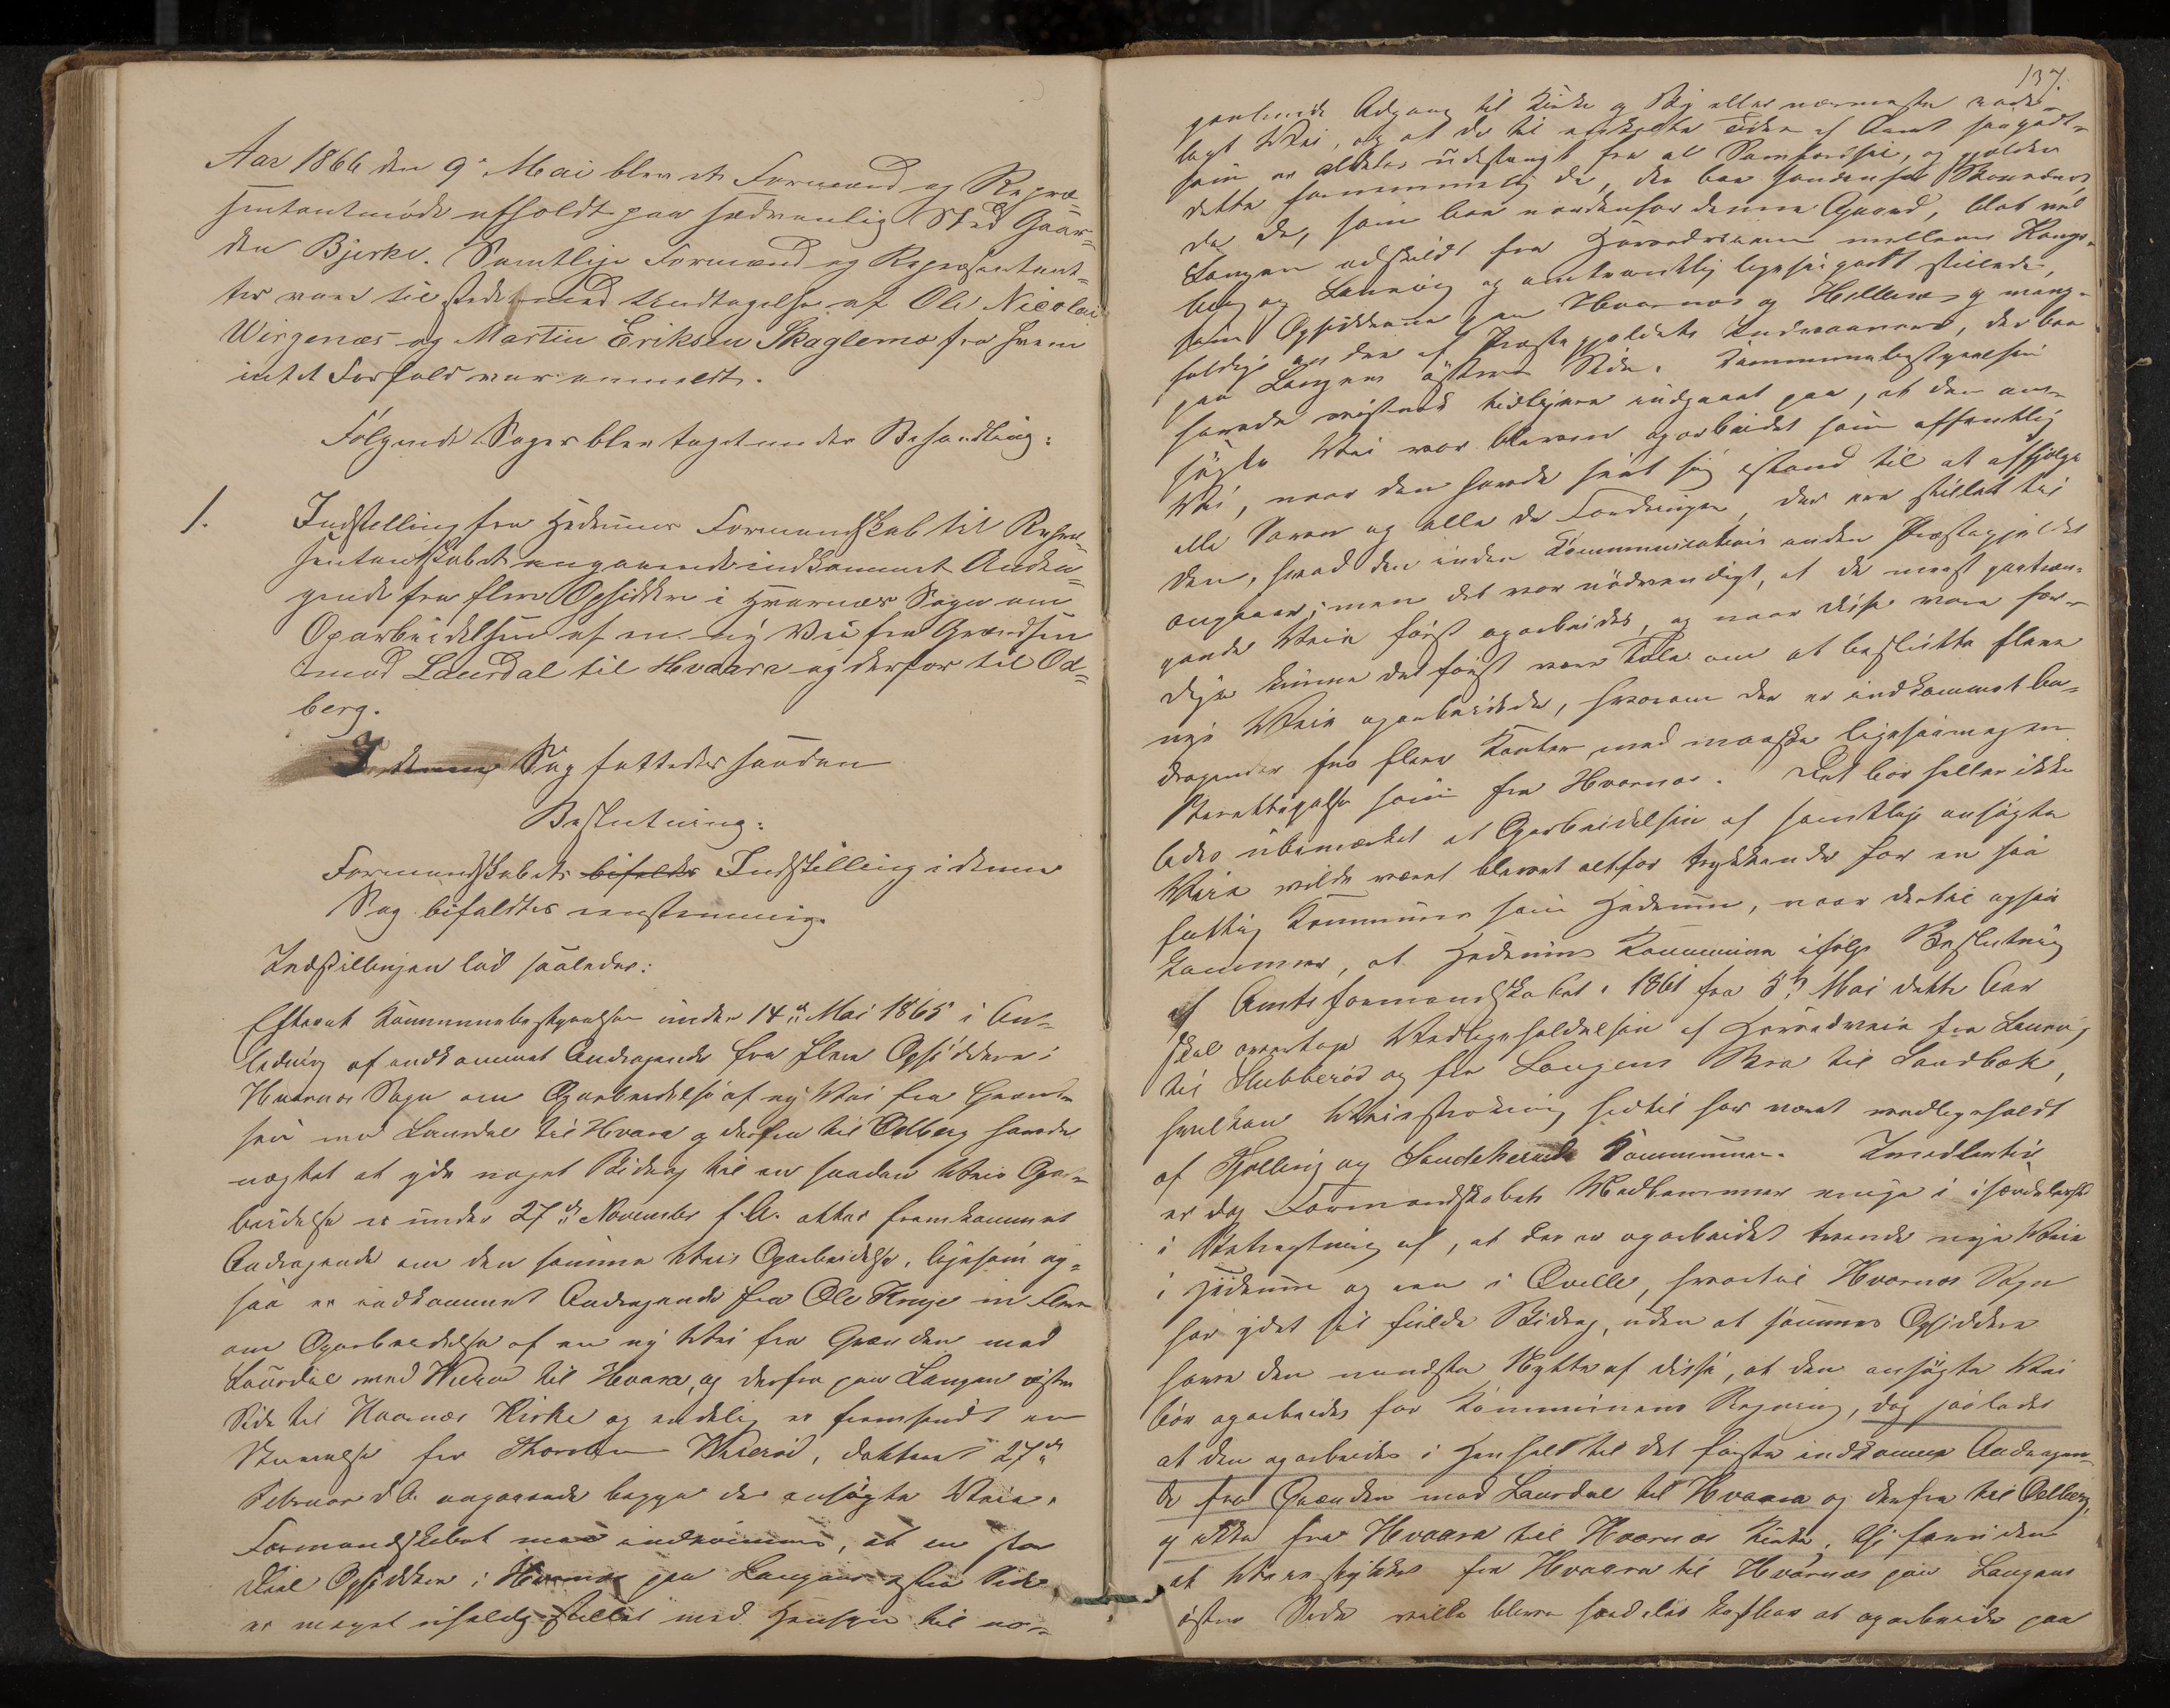 Aar 1866 den 9de Mai blev et Formænd og Repræ=
sentantmøde afholdt paa sædvanlig Sted Gaar=
den Bjerke. Samtlige Formænd og Repræsentant=
ter vare tilstede med Undtagelse af Ole Nicolai
Wirgenæs og Martin Eriksen Skaglemo fra hvem
intet Forfald var anmeldt.
Følgende Sager blev taget under Behandling:
1. Indstilling fra Hedrums Formandskab til Repræ=
sentantskabet angaaende indkommet Andra=
gende fra flere Opsiddere i Hvarnæs Sogn om
Oparbeidelsen af en ny Vei fra Grændsen
mod Laurdal til Hvaara og derfor til Od=
berg.
I denne Sag fattedes saadan
Beslutning:
Formandskabets bifaldes Indstilling i denne
Sag bifaldtes eenstemmig.
Indstillingen lød saaledes:
Efterat Kommunebestyrelsen under 14de Mai 1865 i An=
ledning af indkommet Andragende fra flere Opsiddere i
Hvarnæs Sogn om Oparbeidelse af ny Vei fra Grænd=
sen mod Laurdal til Hvara og derfra til Odberg havde
nægtet at yde noget Bidrag til en saadan Veis Opar=
beidelse er under 27de November f. A. atter fremkommet
Andragende om den samme Veis Oparbeidelse, ligesom og=
saa er indkommet Andragende fra Ole Kruge m. flere
om Oparbeidelse af en ny Vei fra Grænden mod
Laurdal ved til Hvaara, og derfra paa Laugen østre
Side til Hvarnæs Kirke og endelig er fremsendt en
Skrivelse fra Wærød, datteret 27de
Februar d. A. angaaende begge de ansøgte Veie.
Formandskabet maa indrømme, at en stor
Deel Opsiddere i Hvarnæs paa Laugens østre Side
er meget uheldig stillet med Hensyn til no=
137.
genlunde Adgang til Kirke og By eller nærmeste rode=
lagt Vei, og at de til enkelte Tider af Aaret saagodt=
som er aldeles udestængt fra al Samfærdsel, og gjælder
dette fornemmelig de, der boe søndenfor
da de, som boe nordenfor denne Gaard, blot ved
Laugen adskildt fra Hovedveien mellem Kongs=
berg og Laurvig og omtrentlig ligesaagodt stillede,
som Opsidderne paa Hvarnæs og og mang=
foldige andre af Præstegjeldets Indvaanere, der boe
paa Laugens østre Side. Kommunebestyrelsen
havde vistnok tidligere indgaaet paa, at den an=
søgte Vei var bleven oparbeidet som offentlig
Vei, naar den havde seet sig istand til at afhjelpe
alle Savn og alle de Fordringer, der ere stillet til
den, hvad den indre Kommunication inden Præstegjeldet
angaaer; men det var nødvendigt, at de meest paatræn=
gende Veie først oparbeides, og naar disse vare fær=
dige kunne det først være Tale om at beslutte flere
nye Veie oparbeidede, hvorom der er indkommet An=
dragender fra flere Kanter med maaske ligesaamegen
Berettigelse som fra Hvarnæs. Det bør heller ikke
lades ubemærket at Oparbeidelsen af samtlige ansøgte
Veie vilde været blevet altfor trykkende for en saa
fattig Kommune som Hedrum, naar dertil ogsaa
kommer, at Hedrums Kommune ifølge Beslutning
af Amtsformandskabet i 1861 fra 5te Mai dette Aar
skal overtage Vedligeholdelsen af Hovedveie fra Laurvig
til Slubberød og fra Laugens Bro til Landbæk,
hvilken Veistrækning hidtil har været vedligeholdt
af Tjølling og Sandeherreds Kommuner. Imidlertid
er dog Formandskabets Medlemmer enige i isærdeleshed
i Betragtning af, at der er oparbeidet tvende nye Veie
i Hedrum og een i Qvelle, hvortil Hvarnæs Sogn
har ydet sit fulde Bidrag, uden at sammes Opsiddere
have den mindste Nytte af disse, at den ansøgte Vei
bør oparbeides for Kommunens Regning, dog saaledes
at den oparbeides i Henhold til det første indkomne Andragen=
de fra Grændsen mod Laurdal til Hvaara og derfra til Odberg,
og ikke fra Hvaara til Hvarnæs Kirke, thi foruden
at Veistykket fra Hvaara til Hvarnæs paa Laugens
østre Side vilde bleve særdeles kostbar at oparbeide paa